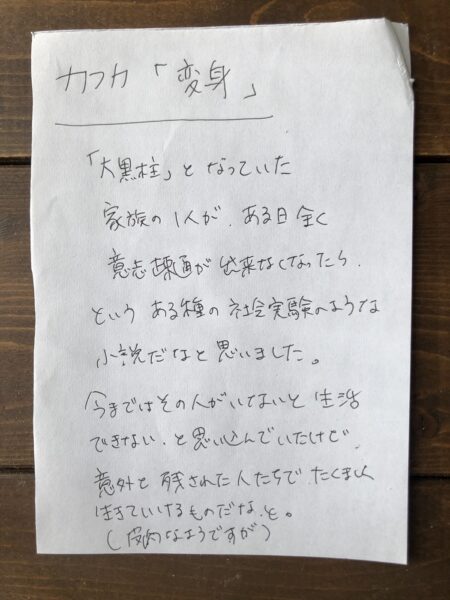 カフカ「変身」
「大黒柱」となっていた
家族の1人が、ある日全く
意志疎通が出来なくなったら、
という ある種の社会実験のような
小説だなと思いました。
今まではその人がいないと生活
できない、と思い込んでいたけど、
意外と残された人たちで、たくましく
生きていけるものだな、と。
(皮肉なようですが)